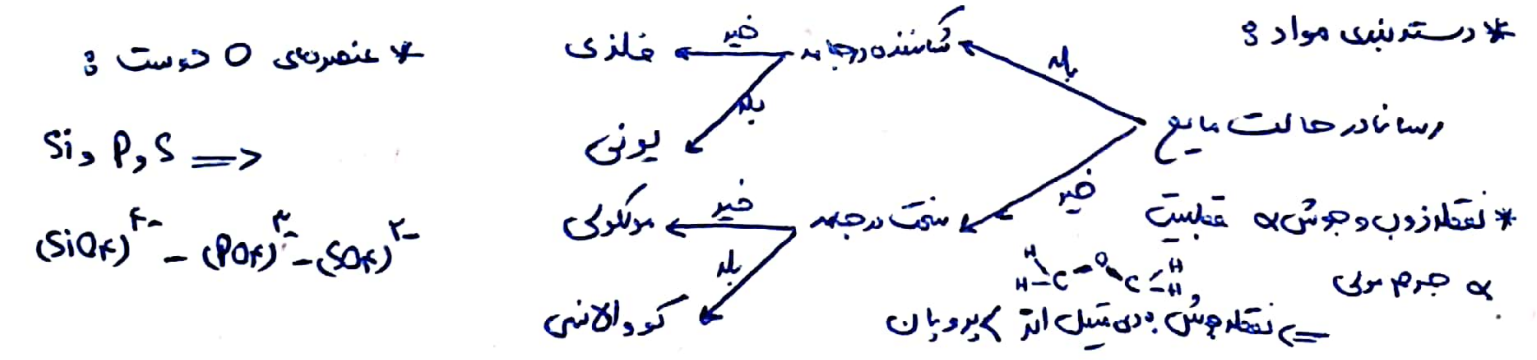 * دسته بندی مواد :
رسانا در حالت مایع
بله
شکننده در جامد
خیر
فلزی
بله
یونی
خیر
سخت در جامد
خیر
مولکولی
بله
کووالانسی
* نقطه ذوب و جوش α قطبیت
α جرم مولی
H H C - O - C H H
=> نقطه جوش: دی متیل اتر > پروپان
* عنصرهای O دوست :
Si, P, S =>
(SiO۴)۴- - (PO۴)۳- - (SO۴)۲-